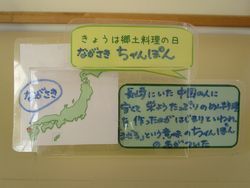 きょうは郷土料理の日
ながさき ちゃんぽん
ながさき
長崎にいた中国の人に
安くて栄ようたっぷりのめん料理
を作ったのがはじまりといわれ
という意味のちゃんぽん